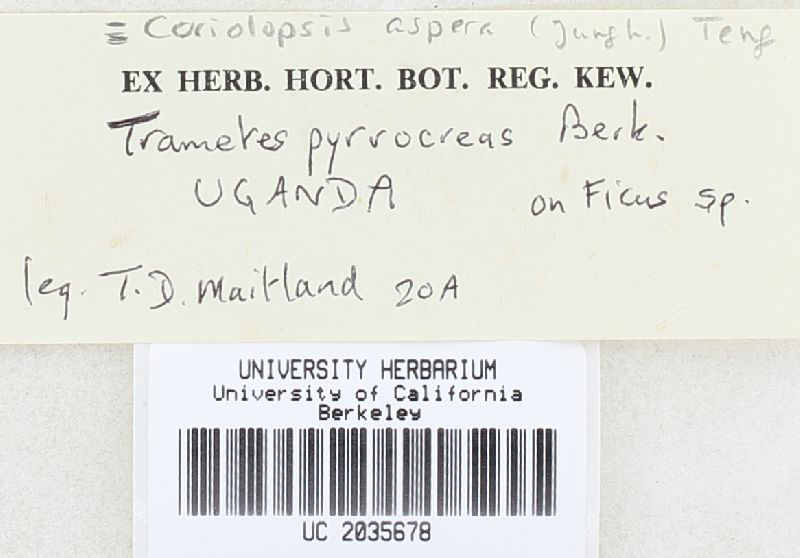 ≡ Coriolopsis aspera (Jungh.) Teng
EX HERB. HORT. BOT. REG. KEW.
Trametes pyrrocreas Berk.
UGANDA on Ficus sp.
leg. T.D. Maitland 20A
UNIVERSITY HERBARIUM
University of California
Berkeley
UC 2035678